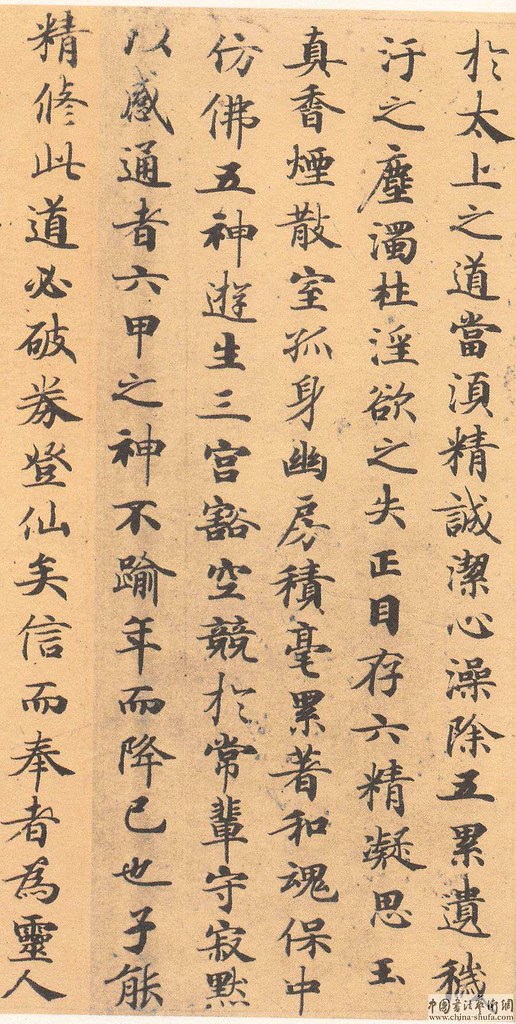 於太上之道當湏精誠潔心澡除五累遺穢
汙之塵濁杜淫欲之失正目存六精凝思玉
真香煙散室孤身幽房積毫累著和魂保中
仿佛五神遊生三宮豁空競於常輩守寂默
以感通者六甲之神不踰年而降己也子能
精修此道必破券登仙矣信而奉者為靈人
中國書法藝術網
www.china-shufa.com